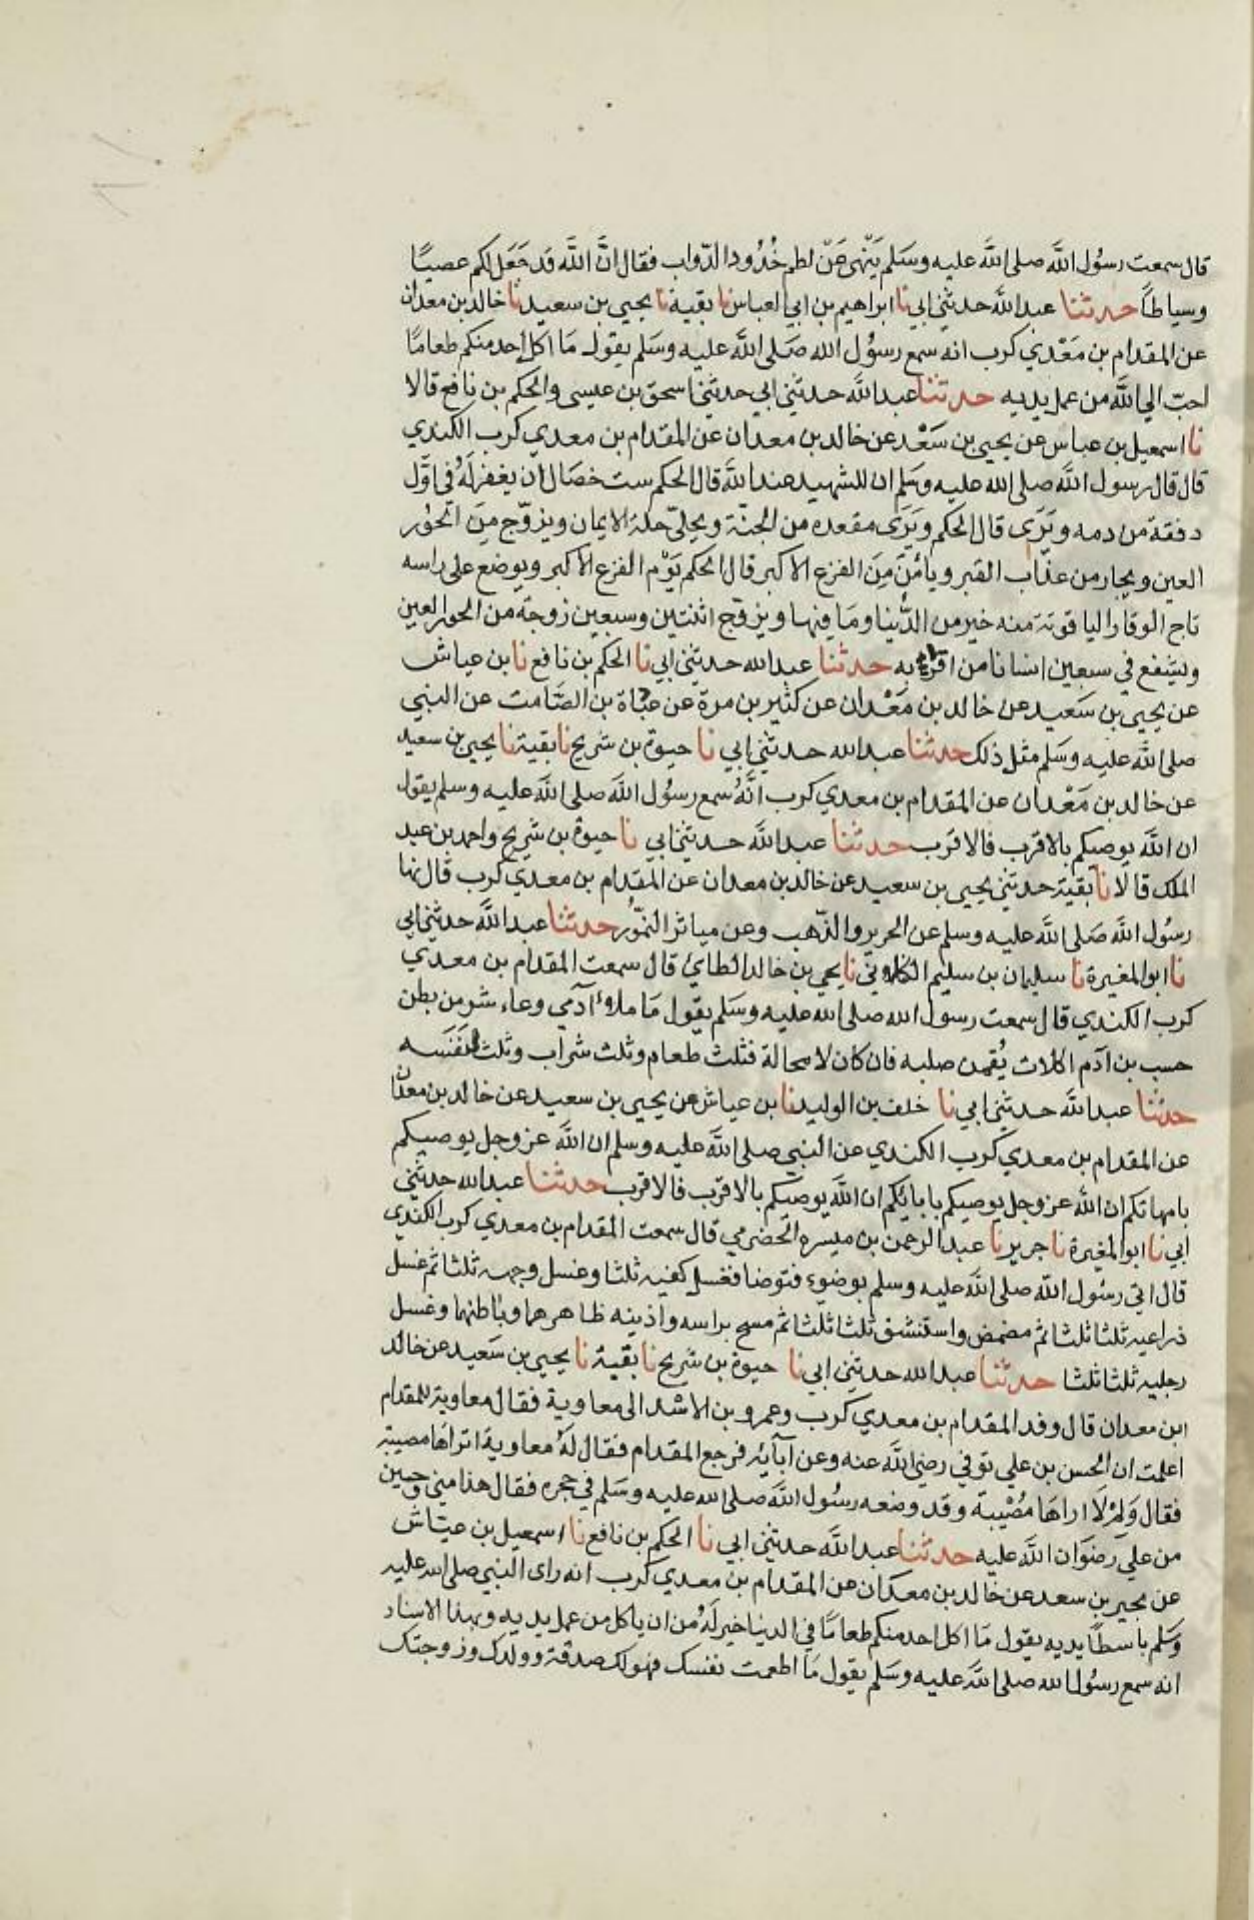 قال سمعت رسُول اللَّه صلى اللَّه عليه وسَلم يَنْهى عَنْ لطم خُدُود الدّواب فقال انَّ اللَّه قَد جَعَل لكم عصيًا
وسياطًا حدثنا عبد اللَّه حدثني ابي نا ابراهيم بن ابي العباس نا بقية نا يحيى بن سعيد نا خالد بن معدان
عن المقدام بن مَعْدي كرب انه سمع رسوُل الله صَلى اللَّه عليه وسَلم يقول مَا اكل احد منكم طعامًا
احب الي اللَّه من عمل يديه حدثنا عبد اللَّه حدثني ابي حدثنا اسحق بن عيسى والحكم بن نافع قالا
نا اسمعيل بن عباس عن يحيى بن سَعْد عن خالد بن معدان عن المقدام بن معدي كرب الكندي
قال قال رسول اللَّه صلى الله عليه وسَلم ان للشهيد عند اللَّه قال الحكم ست خصَال ان يغفر لَهُ في اوّل
دفقة من دمه ويَرَى قال الحكم ويَرَى مقعده من الجنّة ويحلىّ حلة الايمان ويزوّج مِنَ الحوُر
العين ويجار من عذَاب القبر ويَأمَنَ مِنَ الفزع الاكبر قال الحكم يَوْم الفزع الاكبر ويوضع على راسه
تاج الوقار الياقوتة منه خير من الدُّنيا ومَا فيها ويزوّج اثنتين وسبعين زوجة من الحور العين
ويشفع في سبعين انسانا من اقربه حدثنا عبد الله حدثني ابي نا الحكم بن نافع نا بن عياش
عن يحيى بن سَعيد عن خالد بن مَعْدان عن كثير بن مرة عن عبَادة بن الصَّامت عن النبي
صلى اللَّه عليه وسَلم مثل ذلك حدثنا عبد الله حدثني ابي نا حيوة بن شريح نا بقية نا يحيى بن سعيد
عن خالد بن مَعْدان عن المقدام بن معدي كرب انَّهُ سمع رسُول اللَّه صلى اللَّه عليه وسلم يقول
ان اللَّه يوصيكم بالاقرب فالاقرَب حدثنا عبد اللَّه حدثني ابي نا حيوة بن شريح واحمد بن عبد
الملك قالا نا بقية حدثني يحيى بن سعيد عن خالد بن معدان عن المقدام بن معدي كرب قال نها
رسُول اللَّه صَلى اللَّه عليه وسلم عن الحرير والذّهب وعن مياثر النمُّور حدثنا عبد اللَّه حدثني ابي
نا ابو المغيرة نا سليمان بن سليم الكنانيّ نا يحي بن خالد الطائ قال سمعت المقدام بن معدي
كرب الكندي قال سمعت رسول الله صلى الله عليه وسَلم يقول مَا ملاء آدَمي وعاء شر من بطن
حسب بن آدَم اكلات يُقمن صلبه فان كان لا محالة فثلث طعام وثلث شراب وثلث لنَفَسه
حدثنا عبد اللَّه حدثني ابي نا خلف بن الوليد نا بن عياش عن يحيى بن سعيد عن خالد بن معدان
عن المقدام بن معدي كرب الكندي عن النبي صلى اللَّه عليه وسلم ان اللَّه عز وجل يوصيكم
بامهاتكم ان اللَّه عز وجل يوصيكم بابائكم ان اللَّه يوصيكم بالاقرب فالاقرب حدثنا عبد الله حدثني
ابي نا ابو المغيرة نا جرير نا عبد الرحمن بن ميسره الحَضرمي قال سمعت المقدام بن معدي كرب الكندي
قال اتي رسُول اللَّه صلى اللَّه عليه وسلم بوضوء فتوضا فغسل كفيه ثلثا وغسل وجهه ثلثا ثم غسل
ذراعيه ثلثا ثلثا ثم مضمض واستنشق ثلثا ثلثا ثم مسح براسه واذنيه ظاهرهما وباطنهما وغسل
رجليه ثلثا ثلثا حدثنا عبد الله حدثني ابي نا حيوة بن شريح نا بقية نا يحيى بن سَعيد عن خالد
ابن معدان قال وفد المقدام بن معدي كرب وعمرو بن الاشد الى معاوية فقال معاوية للمقدام
اعلمت ان الحسن بن علي توفي رضي اللَّه عنه وعن آبآئه فرجع المقدام فقال لَهُ معاوية اتراهَا مصيبة
فقال وَلِمَ لَا اراهَا مُصِيْبة وقد وضعه رسُول اللَّه صلى الله عليه وسَلم في حجره فقال هذا مني وحسين
من علي رَضوَان اللَّه عليه حدثنا عبد اللَّه حدثني ابي نا الحكم بن نافع نا اسمعيل بن عيّاش
عن بحير بن سعد عن خالد بن معدَان عن المقدام بن معدي كرب انه راى النبي صلى الله عليه
وسَلم باسطًا يديه يقول مَا اكل احد منكم طعامًا في الدنيا خير لَهُ من ان ياكل من عمل يديه وبهذا الاسناد
انه سمع رسوُل الله صلى اللَّه عليه وسَلم يقول مَا اطعمت نفسك فهو لك صدقة وولدك وزوجتك